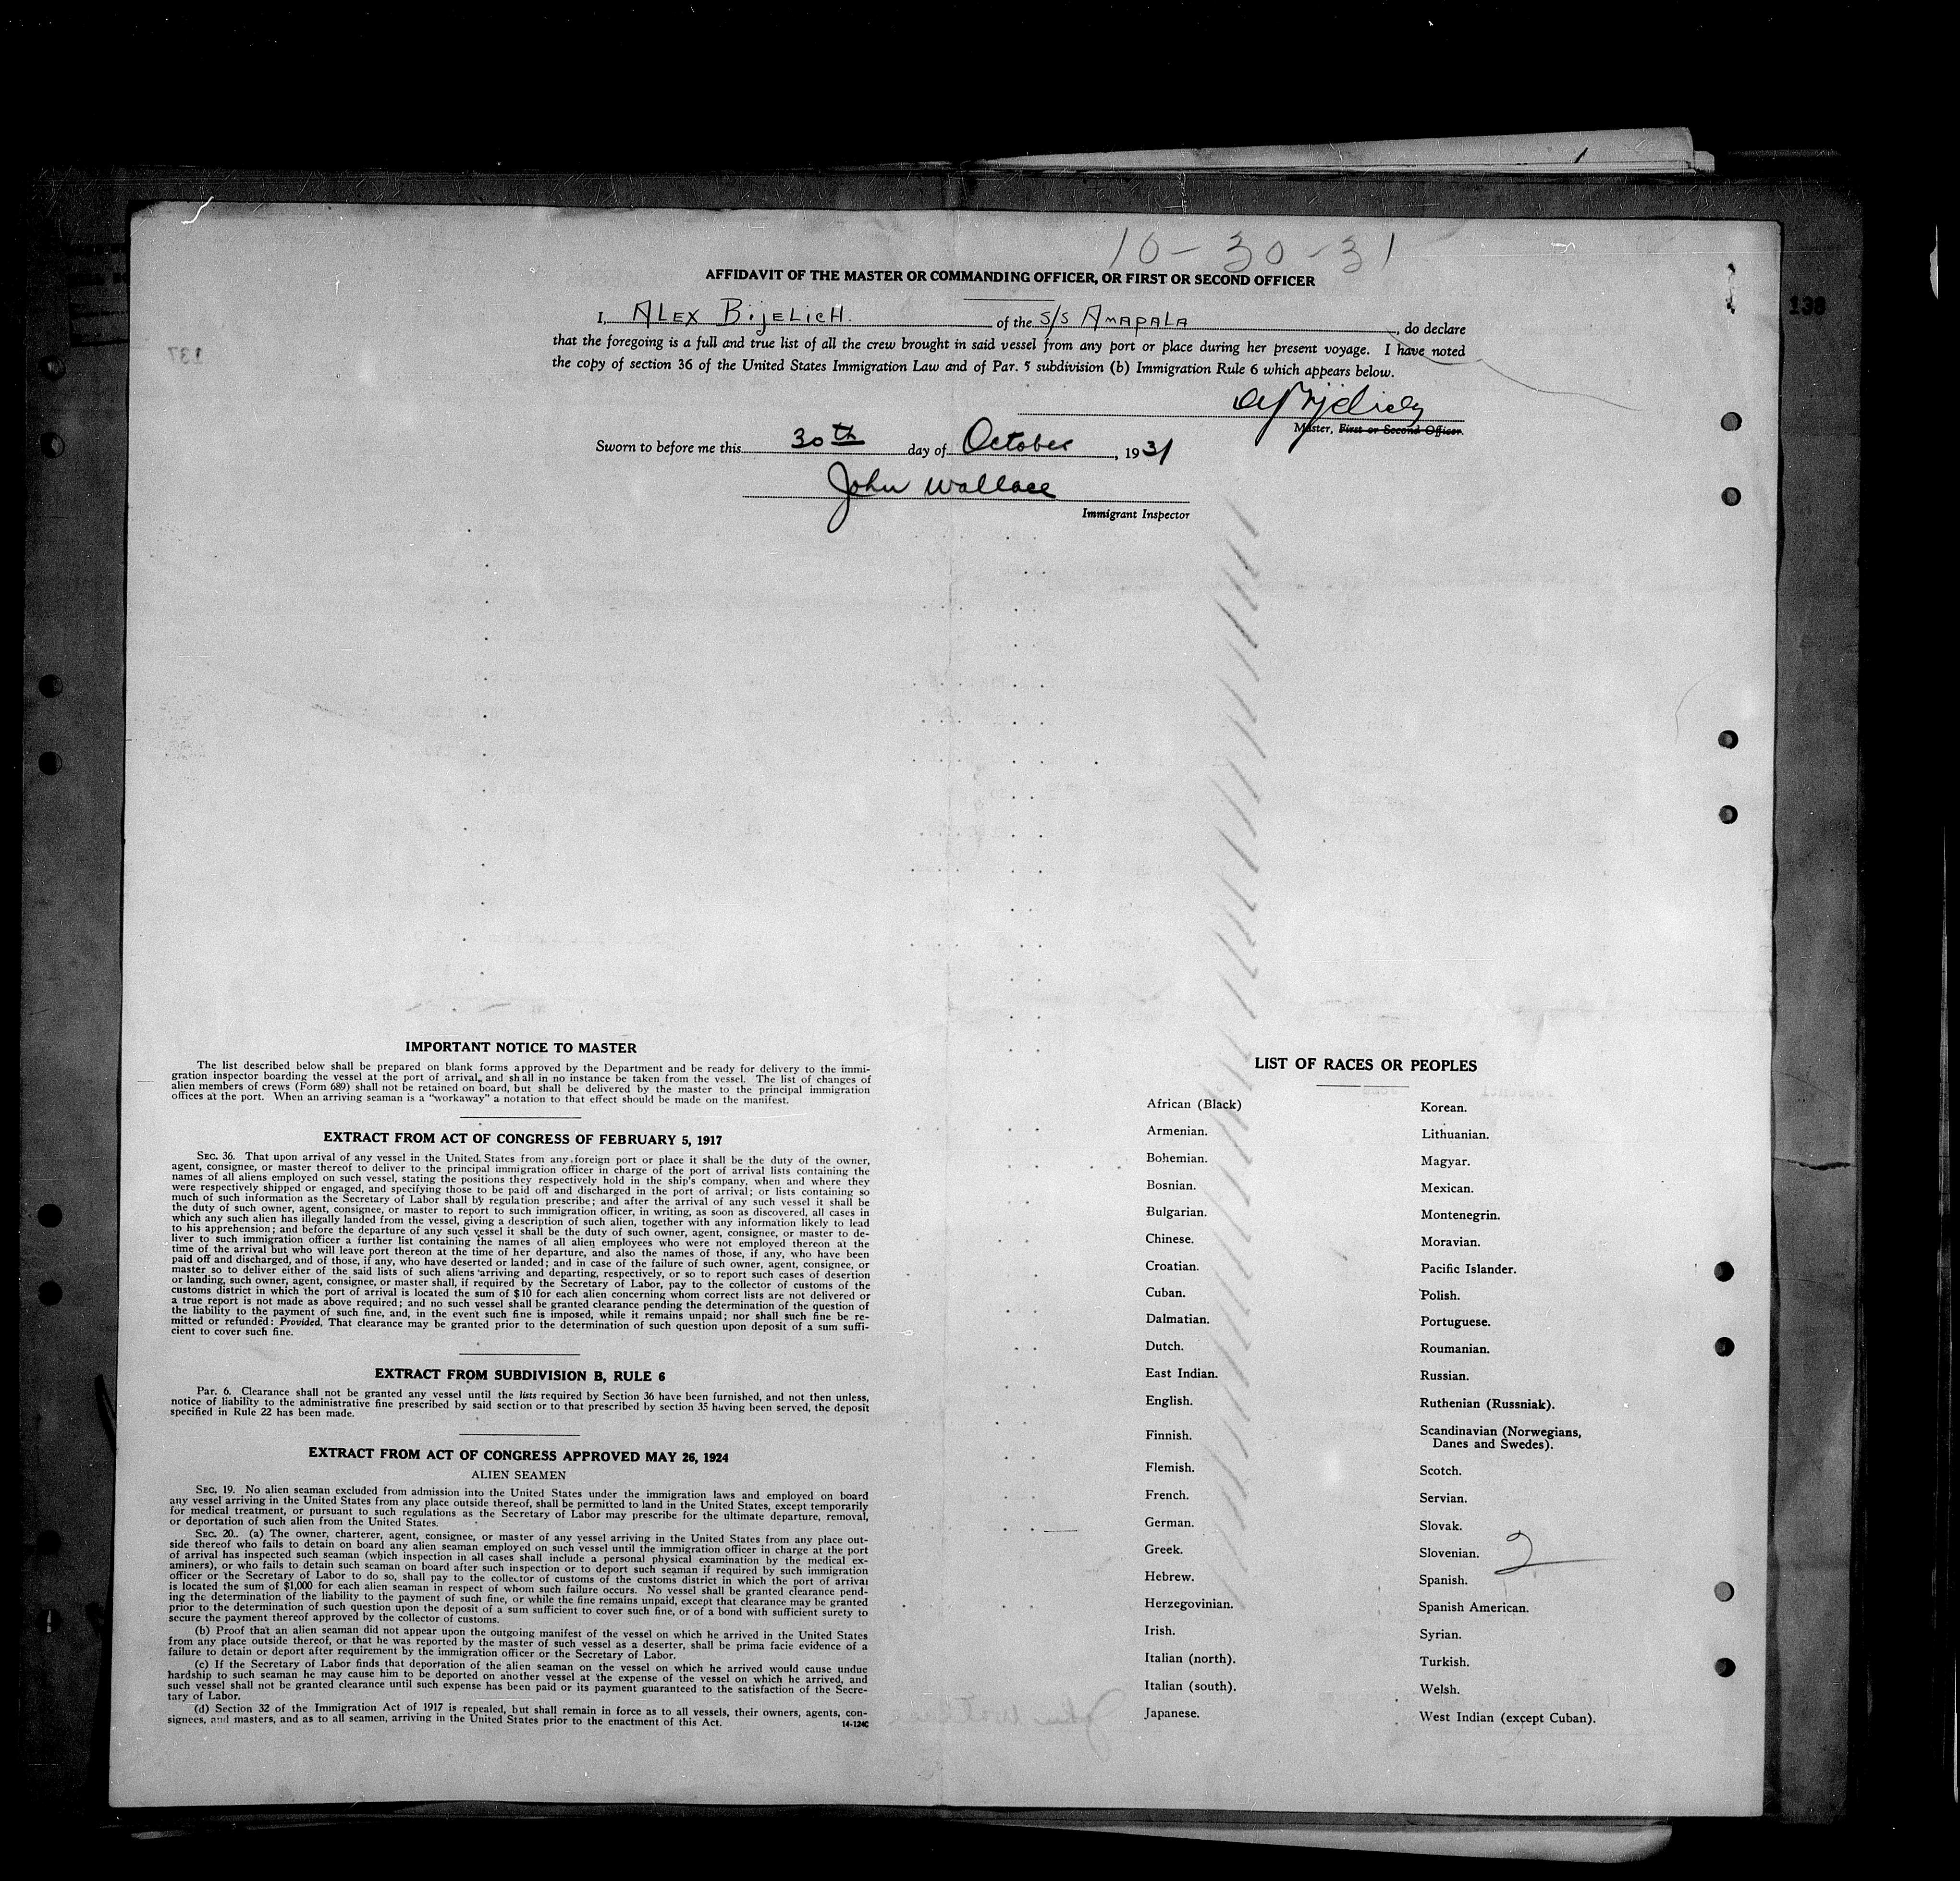 10-30-31
AFFIDAVIT OF THE MASTER OR COMMANDING OFFICER, OR FIRST OR SECOND OFFICER
I, ALEX BIJELICH. of the S/S AMAPALA, do declare
that the foregoing is a full and true list of all the crew brought in said vessel from any port or place during her present voyage. I have noted
the copy of section 36 of the United States Immigration Law and of Par. 5 subdivision (b) Immigration Rule 6 which appears below.
Master, First or Second Officer.
Sworn to before me this 30th day of October, 1931
John Wallace
Immigrant Inspector
138
137
IMPORTANT NOTICE TO MASTER
The list described below shall be prepared on blank forms approved by the Department and be ready for delivery to the immi-
gration inspector boarding the vessel at the port of arrival, and shall in no instance be taken from the vessel. The list of changes of
alien members of crews (Form 689) shall not be retained on board, but shall be delivered by the master to the principal immigration
offices at the port. When an arriving seaman is a "workaway" a notation to that effect should be made on the manifest.
EXTRACT FROM ACT OF CONGRESS OF FEBRUARY 5, 1917
SEC. 36. That upon arrival of any vessel in the United States from any foreign port or place it shall be the duty of the owner,
agent, consignee, or master thereof to deliver to the principal immigration officer in charge of the port of arrival lists containing the
names of all aliens employed on such vessel, stating the positions they respectively hold in the ship's company, when and where they
were respectively shipped or engaged, and specifying those to be paid off and discharged in the port of arrival; or lists containing so
much of such information as the Secretary of Labor shall by regulation prescribe; and after the arrival of any such vessel it shall be
the duty of such owner, agent, consignee, or master to report to such immigration officer, in writing, as soon as discovered, all cases in
which any such alien has illegally landed from the vessel, giving a description of such alien, together with any information likely to lead
to his apprehension; and before the departure of any such vessel it shall be the duty of such owner, agent, consignee, or master to de-
liver to such immigration officer a further list containing the names of all alien employees who were not employed thereon at the
time of the arrival but who will leave port thereon at the time of her departure, and also the names of those, if any, who have been
paid off and discharged, and of those, if any, who have deserted or landed; and in case of the failure of such owner, agent, consignee, or
master so to deliver either of the said lists of such aliens arriving and departing, respectively, or so to report such cases of desertion
or landing, such owner, agent, consignee, or master shall, if required by the Secretary of Labor, pay to the collector of customs of the
customs district in which the port of arrival is located the sum of $10 for each alien concerning whom correct lists are not delivered or
a true report is not made as above required; and no such vessel shall be granted clearance pending the determination of the question of
the liability to the payment of such fine, and, in the event such fine is imposed, while it remains unpaid; nor shall such fine be re-
mitted or refunded: Provided, That clearance may be granted prior to the determination of such question upon deposit of a sum suffi-
cient to cover such fine.
EXTRACT FROM SUBDIVISION B, RULE 6
Par. 6. Clearance shall not be granted any vessel until the lists required by Section 36 have been furnished, and not then unless,
notice of liability to the administrative fine prescribed by said section or to that prescribed by section 35 having been served, the deposit
specified in Rule 22 has been made.
EXTRACT FROM ACT OF CONGRESS APPROVED MAY 26, 1924
ALIEN SEAMEN
SEC. 19. No alien seaman excluded from admission into the United States under the immigration laws and employed on board
any vessel arriving in the United States from any place outside thereof, shall be permitted to land in the United States, except temporarily
for medical treatment, or pursuant to such regulations as the Secretary of Labor may prescribe for the ultimate departure, removal,
or deportation of such alien from the United States.
SEC. 20. (a) The owner, charterer, agent, consignee, or master of any vessel arriving in the United States from any place out-
side thereof who fails to detain on board any alien seaman employed on such vessel until the immigration officer in charge at the port
of arrival has inspected such seaman (which inspection in all cases shall include a personal physical examination by the medical ex-
aminers), or who fails to detain such seaman on board after such inspection or to deport such seaman if required by such immigration
officer or the Secretary of Labor to do so, shall pay to the collector of customs of the customs district in which the port of arrival
is located the sum of $1,000 for each alien seaman in respect of whom such failure occurs. No vessel shall be granted clearance pend-
ing the determination of the liability to the payment of such fine, or while the fine remains unpaid, except that clearance may be granted
prior to the determination of such question upon the deposit of a sum sufficient to cover such fine, or of a bond with sufficient surety to
secure the payment thereof approved by the collector of customs.
(b) Proof that an alien seaman did not appear upon the outgoing manifest of the vessel on which he arrived in the United States
from any place outside thereof, or that he was reported by the master of such vessel as a deserter, shall be prima facie evidence of a
failure to detain or deport after requirement by the immigration officer or the Secretary of Labor.
(c) If the Secretary of Labor finds that deportation of the alien seaman on the vessel on which he arrived would cause undue
hardship to such seaman he may cause him to be deported on another vessel at the expense of the vessel on which he arrived, and
such vessel shall not be granted clearance until such expense has been paid or its payment guaranteed to the satisfaction of the Secre-
tary of Labor.
(d) Section 32 of the Immigration Act of 1917 is repealed, but shall remain in force as to all vessels, their owners, agents, con-
signees, and masters, and as to all seamen, arriving in the United States prior to the enactment of this Act.
14-1240
LIST OF RACES OR PEOPLES
African (Black)
Armenian.
Bohemian.
Bosnian.
Bulgarian.
Chinese.
Croatian.
Cuban.
Dalmatian.
Dutch.
East Indian.
English.
Finnish.
Flemish.
French.
German.
Greek.
Hebrew.
Herzegovinian.
Irish.
Italian (north).
Italian (south).
Japanese.
Korean.
Lithuanian.
Magyar.
Mexican.
Montenegrin.
Moravian.
Pacific Islander.
Polish.
Portuguese.
Roumanian.
Russian.
Ruthenian (Russniak).
Scandinavian (Norwegians,
Danes and Swedes).
Scotch.
Servian.
Slovak.
Slovenian.
2
Spanish.
Spanish American.
Syrian.
Turkish.
Welsh.
West Indian (except Cuban).